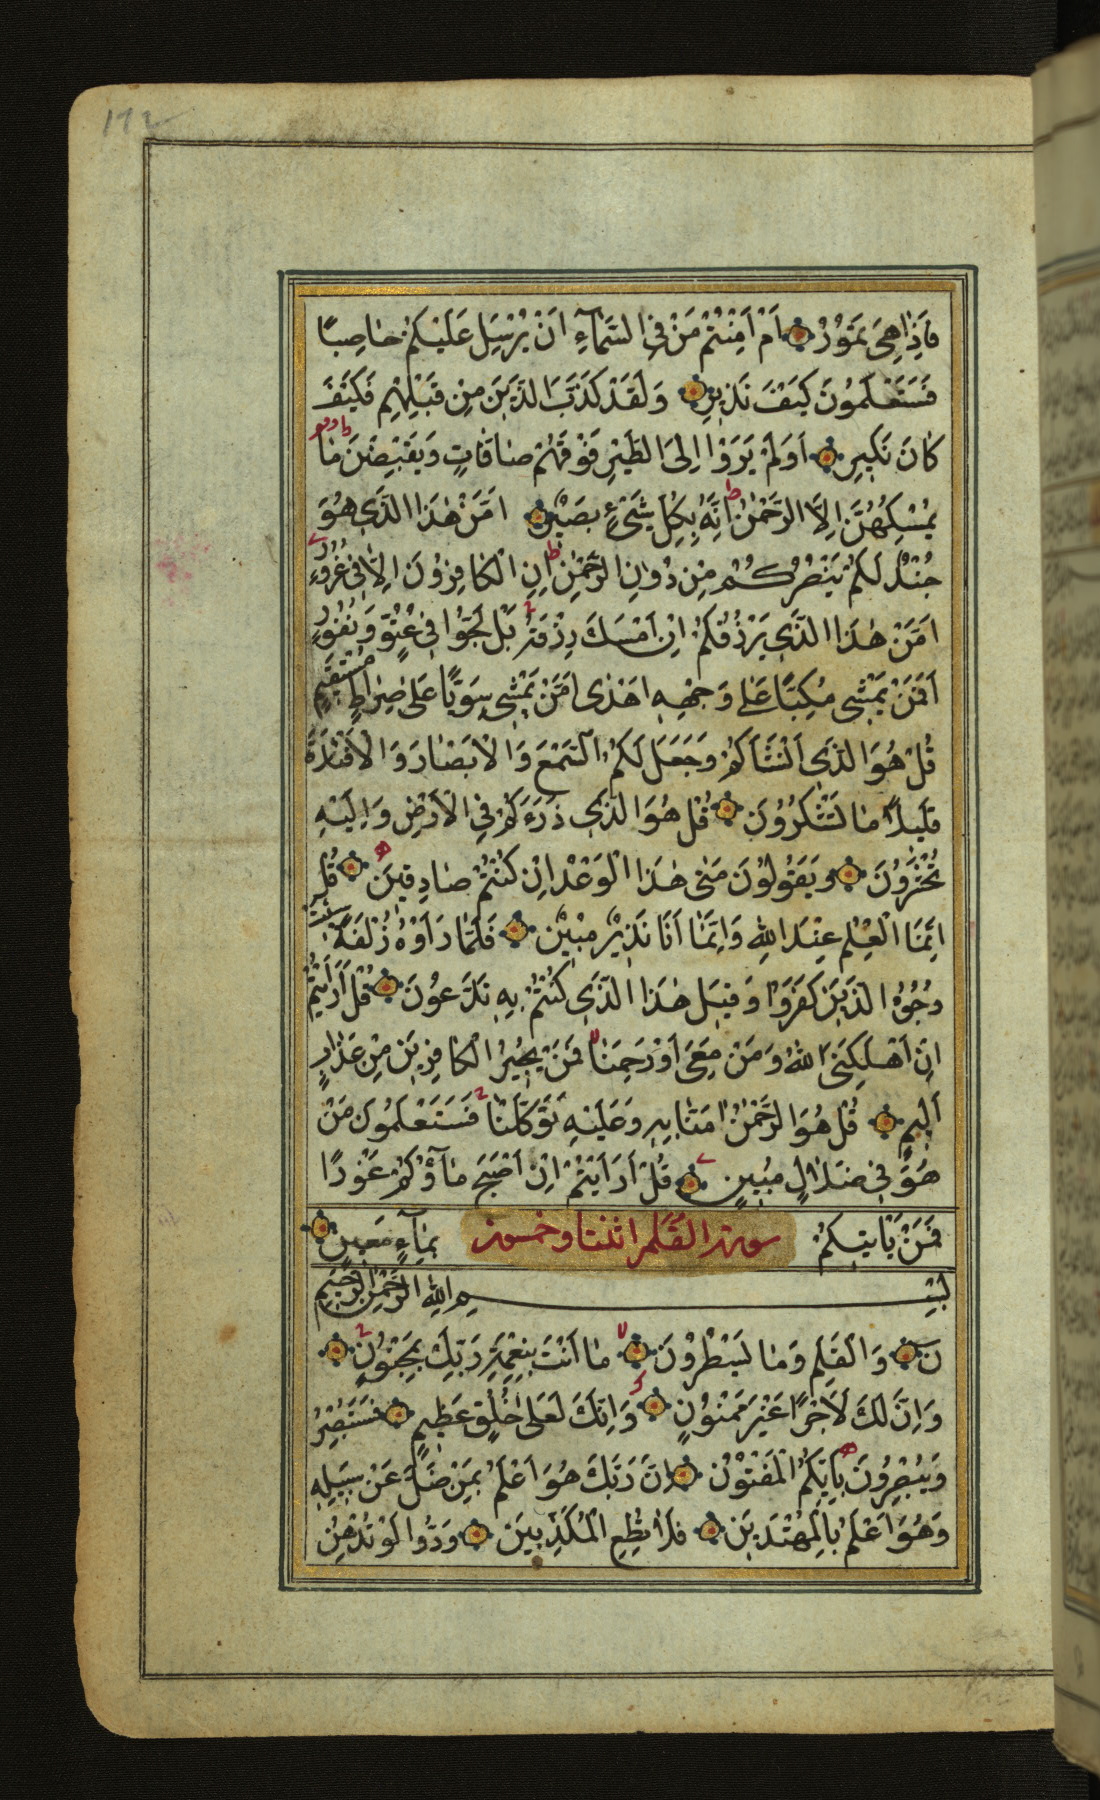 172
فَاِذَا هِىَ تَمُوْرُ اَمْ اَمِنْتُمْ مَنْ فِى السَّمَاۤءِ اَنْ يُرْسِلَ عَلَيْكُمْ حَاصِبًا
فَسَتَعْلَمُونَ كَيْفَ نَذِيرِ وَلَقَدْ كَذَّبَ الَّذِينَ مِنْ قَبْلِهِمْ فَكَيْفَ
كَانَ نَكِيرِ اَوَلَمْ يَرَوْا اِلَى الطَّيْرِ فَوْقَهُمْ صَافَّاتٍ وَيَقْبِضْنَ مَا
يُمْسِكُهُنَّ اِلَّا الرَّحْمٰنُ اِنَّهُ بِكُلِّ شَىْءٍ بَصِيْرٌ اَمَّنْ هٰذَا الَّذِى هُوَ
جُنْدٌ لَكُمْ يَنْصُرُكُمْ مِنْ دُونِ الرَّحْمٰنِ اِنِ الْكَافِرُونَ اِلَّا فِى غُرُورٍ
اَمَّنْ هٰذَا الَّذِى يَرْزُقُكُمْ اِنْ اَمْسَكَ رِزْقَهُ بَلْ لَجُّوا فِى عُتُوٍّ وَنُفُورٍ
اَفَمَنْ يَمْشِى مُكِبًّا عَلٰى وَجْهِهِ اَهْدٰى اَمَّنْ يَمْشِى سَوِيًّا عَلٰى صِرَاطٍ مُسْتَقِيمٍ
قُلْ هُوَ الَّذِى اَنْشَاَكُمْ وَجَعَلَ لَكُمُ السَّمْعَ وَالْاَبْصَارَ وَالْاَفْئِدَةَ
قَلِيلًا مَا تَشْكُرُونَ قُلْ هُوَ الَّذِى ذَرَءَكُمْ فِى الْاَرْضِ وَاِلَيْهِ
تُحْشَرُونَ وَيَقُولُونَ مَتٰى هٰذَا الْوَعْدُ اِنْ كُنْتُمْ صَادِقِينَ قُلْ
اِنَّمَا الْعِلْمُ عِنْدَ اللّٰهِ وَاِنَّمَا اَنَا نَذِيْرٌ مُبِيْنٌ فَلَمَّا رَاَوْهُ زُلْفَةً سِيئَتْ
وُجُوهُ الَّذِينَ كَفَرُوا وَقِيلَ هٰذَا الَّذِى كُنْتُمْ بِهِ تَدَّعُونَ قُلْ اَرَاَيْتُمْ
اِنْ اَهْلَكَنِىَ اللّٰهُ وَمَنْ مَعِىَ اَوْ رَحِمَنَا فَمَنْ يُجِيرُ الْكَافِرِينَ مِنْ عَذَابٍ
اَلِيمٍ قُلْ هُوَ الرَّحْمٰنُ اٰمَنَّا بِهِ وَعَلَيْهِ تَوَكَّلْنَا فَسَتَعْلَمُونَ مَنْ
هُوَ فِى ضَلَالٍ مُبِينٍ قُلْ اَرَاَيْتُمْ اِنْ اَصْبَحَ مَاۤؤُكُمْ غَوْرًا
فَمَنْ يَاْتِيكُمْ سورة القلم اثنتا وخمسون بِمَاۤءٍ مَعِينٍ
بِسْمِ اللّٰهِ الرَّحْمٰنِ الرَّحِيمِ
ن وَالْقَلَمِ وَمَا يَسْطُرُونَ مَا اَنْتَ بِنِعْمَةِ رَبِّكَ بِمَجْنُونٍ
وَاِنَّ لَكَ لَاَجْرًا غَيْرَ مَمْنُونٍ وَاِنَّكَ لَعَلٰى خُلُقٍ عَظِيمٍ فَسَتُبْصِرُ
وَيُبْصِرُونَ بِاَيِّكُمُ الْمَفْتُوْنُ اِنَّ رَبَّكَ هُوَ اَعْلَمُ بِمَنْ ضَلَّ عَنْ سَبِيلِهِ
وَهُوَ اَعْلَمُ بِالْمُهْتَدِينَ فَلَا تُطِعِ الْمُكَذِّبِينَ وَدُّوا لَوْ تُدْهِنُ